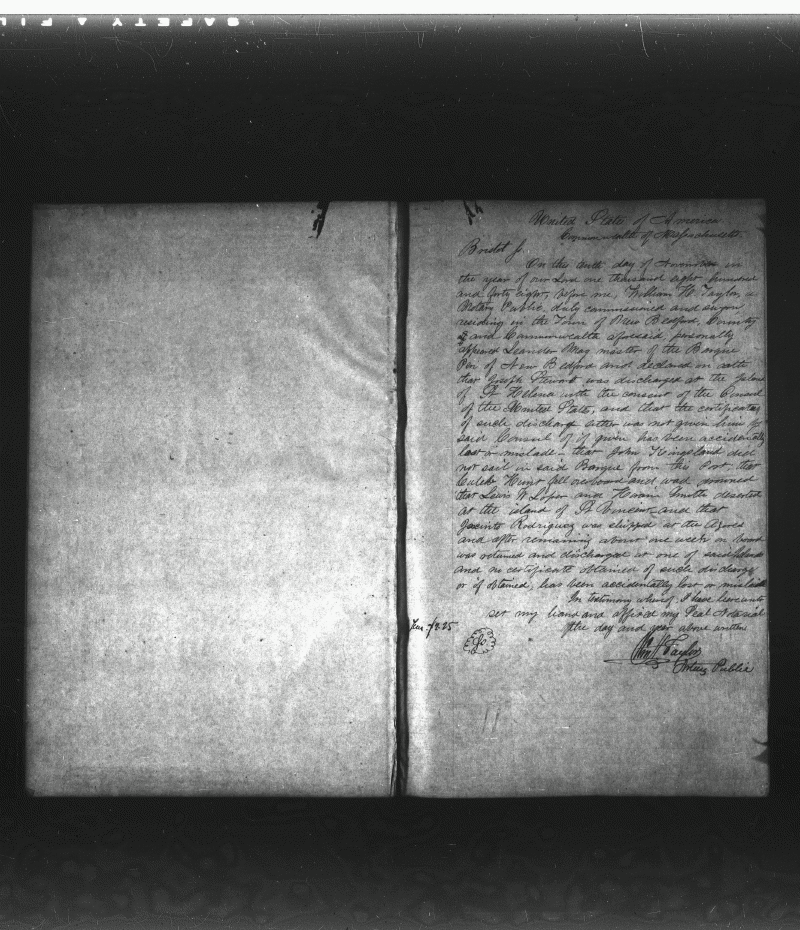 SAFETY FIL
United States of America
Commonwealth of Massachusetts
Bristol Js.
On this tenth day of November in
the year of our Lord one thousand eight hundred
and forty eight, before me, William H. Taylor, a
Notary Public, duly commissioned and sworn
residing in the Town of New Bedford, County
& and Commonwealth aforesaid, personally
appeared Leander May master of the Barque
of New Bedford and declared on oath
that Joseph Steward was discharged at the Island
of St Helena with the consent of the Consul
of the United States, and that the certificates
of such discharge either was not given him by
said Consul or if given has been accidentally
lost or mislaid - that John Kingsland did
not sail in said Barque from this Port, that
Caleb Hunt fell overboard and was drowned
that Lewis W Loper and Hiram Smith deserted
at the island of St Vincent and that
Jacinto Rodriguez was shipped at the Azores
and after remaining about one week on board
was returned and discharged at one of said Islands
and no certificate obtained of such discharge
or if obtained, has been accidentally lost or mislaid
In testimony whereof I have hereunto
set my hand and affixed my Seal Notarial
the day and year above written
Wm H Taylor
Notary Public